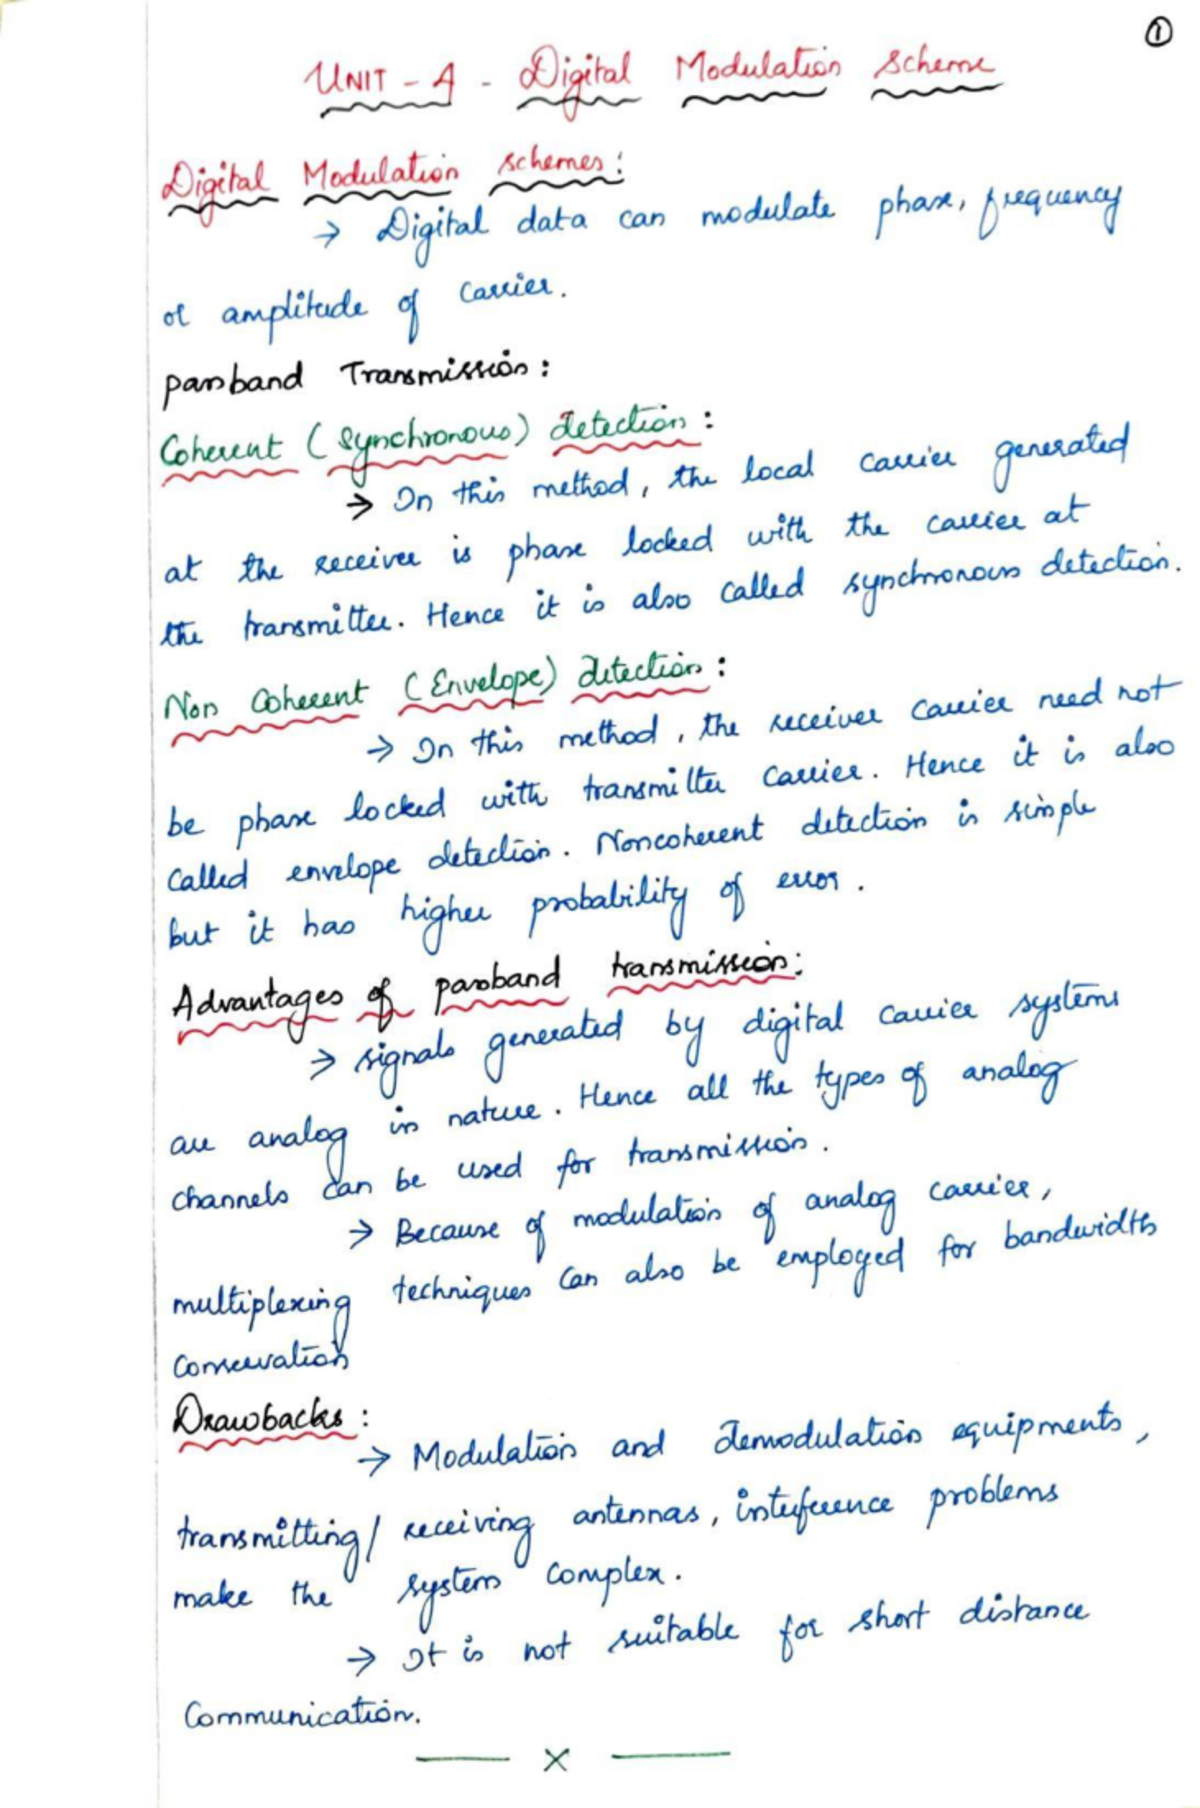 ①
UNIT - 4 - Digital Modulation Scheme
Digital Modulation schemes:
→ Digital data can modulate phase, frequency
or amplitude of carrier.
passband Transmission:
Coherent (synchronous) detection:
→ In this method, the local carrier generated
at the receiver is phase locked with the carrier at
the transmitter. Hence it is also called synchronous detection.
Non Coherent (Envelope) detection:
→ In this method, the receiver carrier need not
be phase locked with transmitter carrier. Hence it is also
called envelope detection. Noncoherent detection is simple
but it has higher probability of error.
Advantages of passband transmission:
→ signals generated by digital carrier systems
are analog in nature. Hence all the types of analog
channels can be used for transmission.
→ Because of modulation of analog carrier,
multiplexing techniques can also be employed for bandwidth
conservation
Drawbacks:
→ Modulation and demodulation equipments,
transmitting/ receiving antennas, interference problems
make the system complex.
→ It is not suitable for short distance
Communication.
— x —